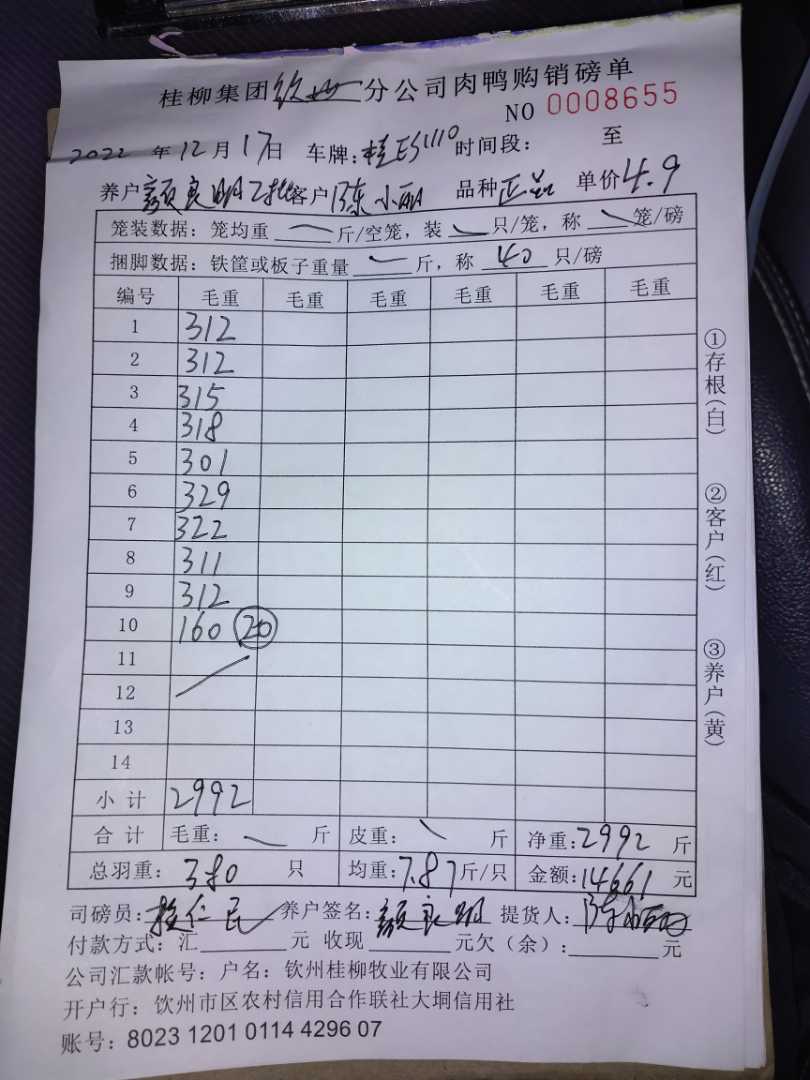 桂柳集团钦州分公司肉鸭购销磅单
NO 0008655
2022年12月17日 车牌: 1110 时间段: 至
养户颜良明 客户陈小丽 品种正品 单价4.9
笼装数据: 笼均重 斤/空笼, 装 只/笼, 称 笼/磅
捆脚数据: 铁筐或板子重量 斤, 称 40 只/磅
编号 毛重 毛重 毛重 毛重 毛重 毛重
1 312
2 312
3 315
4 318
5 301
6 329
7 322
8 311
9 312
10 160 20
11
12
13
14
小计 2992
合计 毛重: 斤 皮重: 斤 净重:2992 斤
总羽重: 380 只 均重:7.87斤/只 金额:14661元
司磅员: 仁民 养户签名:颜良明 提货人:陈
付款方式: 汇 元 收现 元欠(余): 元
公司汇款帐号: 户名: 钦州桂柳牧业有限公司
开户行: 钦州市区农村信用合作联社大垌信用社
账号: 8023 1201 0114 4296 07
①存根(白)
②客户(红)
③养户(黄)